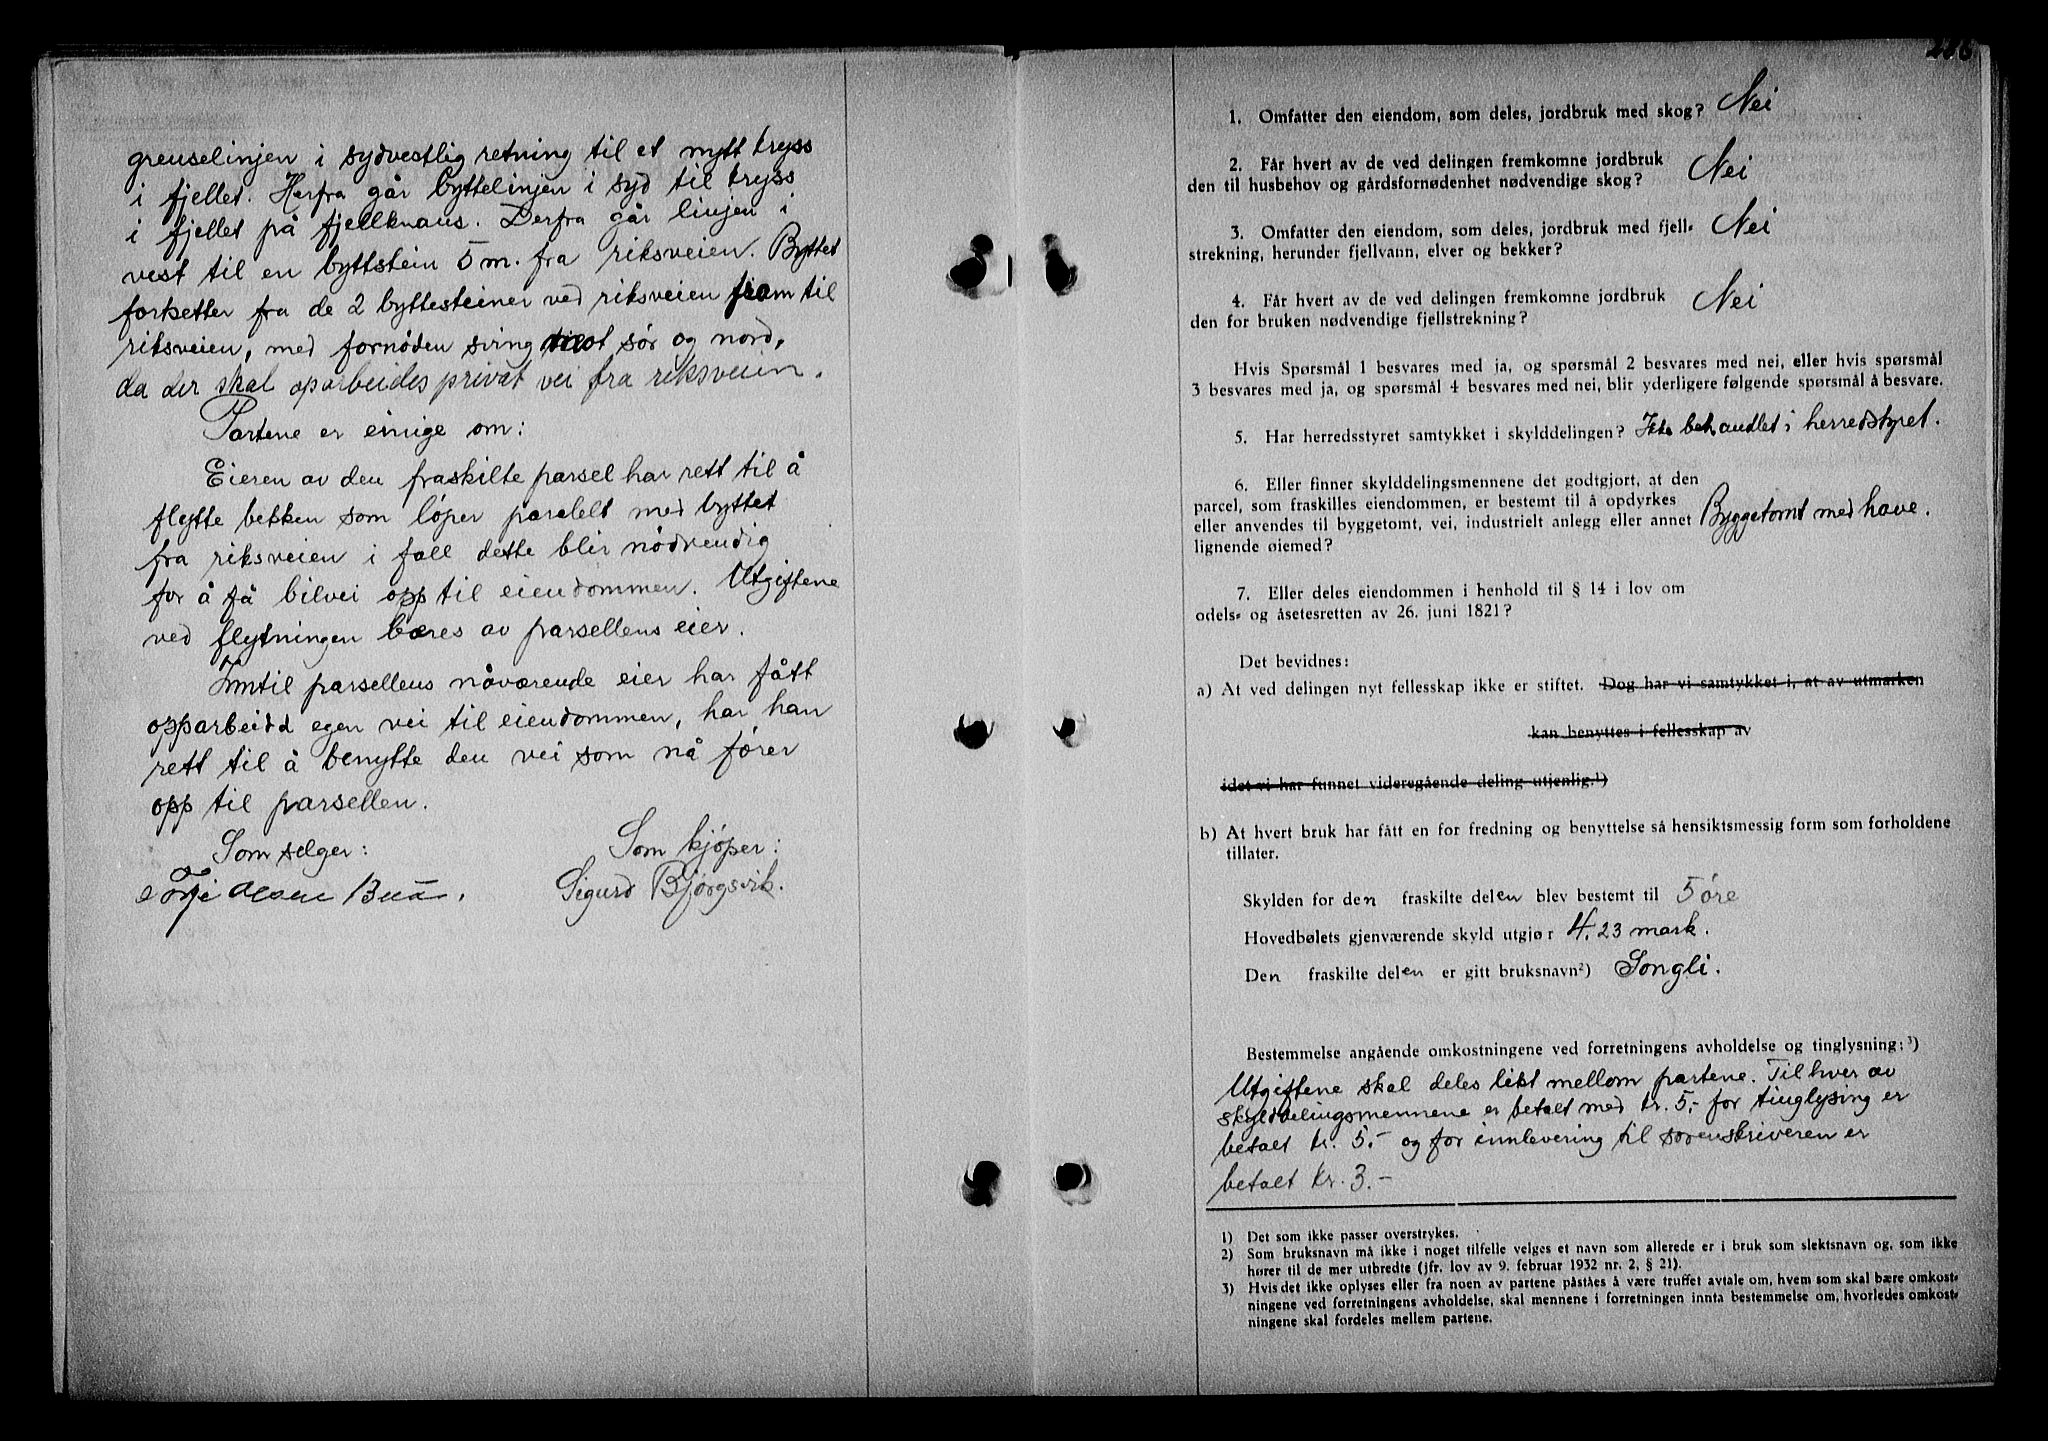 grenselinjen i sydvestlig retning til et nytt kryss
i fjellet. Herfra går byttelinjen i syd til kryss
i fjellet på fjellknaus. Derfra går linjen i
vest til en byttstein 5 m. fra riksveien. Byttet
fortsetter fra de 2 byttesteiner ved riksveien fram til
riksveien, med fornöden sving mot sör og nord,
da der skal oparbeides privat vei fra riksveien.
Partene er einige om:
Eieren av den fraskilte parsel har rett til å
flytte bekken som löper paralelt med byttet
fra riksveien i fall dette blir nödvendig
for å få bilvei opp til eiendommen. Utgiftene
ved flytningen bæres av parsellens eier.
Inntil parsellens nåværende eier har fått
opparbeidd egen vei til eiendommen, har han
rett til å benytte den vei som nå förer
opp til parsellen.
Som selger: Som kjöper:
Torje Olsen Sigurd Björgsvik.
1. Omfatter den eiendom, som deles, jordbruk med skog? Nei
2. Får hvert av de ved delingen fremkomne jordbruk
den til husbehov og gårdsfornødenhet nødvendige skog? Nei
3. Omfatter den eiendom, som deles, jordbruk med fjell-
strekning, herunder fjellvann, elver og bekker? Nei
4. Får hvert av de ved delingen fremkomne jordbruk
den for bruken nødvendige fjellstrekning? Nei
Hvis Spørsmål 1 besvares med ja, og spørsmål 2 besvares med nei, eller hvis spørsmål
3 besvares med ja, og spørsmål 4 besvares med nei, blir yderligere følgende spørsmål å besvare.
5. Har herredsstyret samtykket i skylddelingen? Ikke behandlet i herredstyret.
6. Eller finner skylddelingsmennene det godtgjort, at den
parcel, som fraskilles eiendommen, er bestemt til å opdyrkes
eller anvendes til byggetomt, vei, industrielt anlegg eller annet Byggetomt med have.
lignende øiemed?
7. Eller deles eiendommen i henhold til § 14 i lov om
odels- og åsetesretten av 26. juni 1821?
Det bevidnes:
a) At ved delingen nyt fellesskap ikke er stiftet. Dog har vi samtykket i, at av utmarken
kan benyttes i fellesskap av
idet vi har funnet videregående deling utjenlig.¹)
b) At hvert bruk har fått en for fredning og benyttelse så hensiktsmessig form som forholdene
tillater.
Skylden for den fraskilte delen blev bestemt til 5 öre
Hovedbølets gjenværende skyld utgjør 4.23 mark.
Den fraskilte delen er gitt bruksnavn²) Songli.
Bestemmelse angående omkostningene ved forretningens avholdelse og tinglysning:³)
Utgiftene skal deles likt mellom partene. Til hver av
skylddelingsmennene er betalt med kr. 5,- for tinglysing er
betalt kr. 5.- og for innlevering til sorenskriveren er
betalt kr. 3.-
1) Det som ikke passer overstrykes.
2) Som bruksnavn må ikke i noget tilfelle velges et navn som allerede er i bruk som slektsnavn og, som ikke
hører til de mer utbredte (jfr. lov av 9. februar 1932 nr. 2, § 21).
3) Hvis det ikke oplyses eller fra noen av partene påståes å være truffet avtale om, hvem som skal bære omkost-
ningene ved forretningens avholdelse, skal mennene i forretningen innta bestemmelse om, hvorledes omkost-
ningene skal fordeles mellem partene.